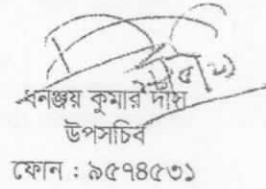 ধনঞ্জয় কুমার দাস
উপসচিব
ফোন : ৯৫৭৪৫৩১